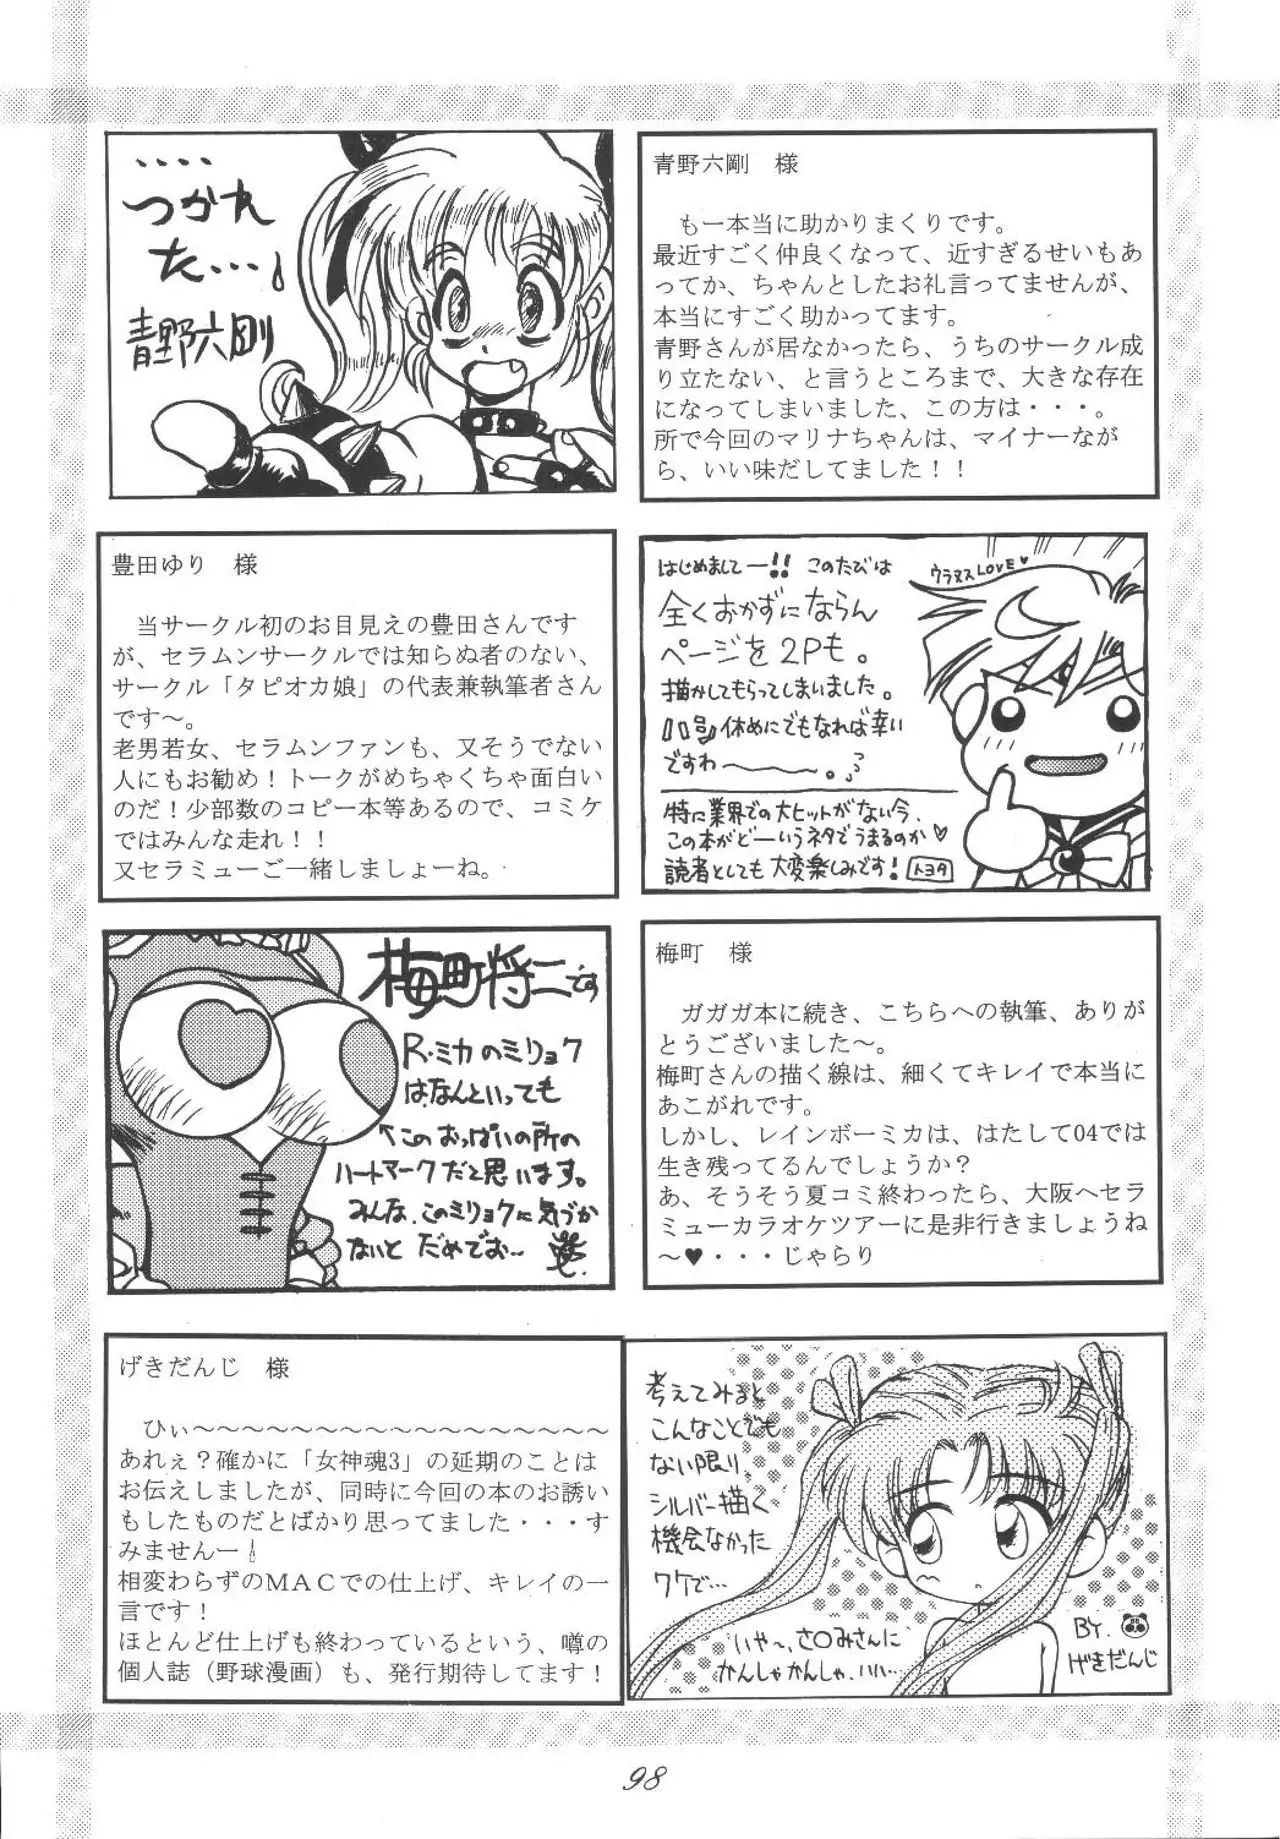 ‥‥
つかれ
た…
青野六剛
青野六剛　様
も一本当に助かりまくりです。
最近すごく仲良くなって、近すぎるせいもあ
ってか、ちゃんとしたお礼言ってませんが、
本当にすごく助かってます。
青野さんが居なかったら、うちのサークル成
り立たない、と言うところまで、大きな存在
になってしまいました、この方は・・・。
所で今回のマリナちゃんは、マイナーなが
ら、いい味だしてました！！
豊田ゆり　様
当サークル初のお目見えの豊田さんです
が、セラムンサークルでは知らぬ者のない、
サークル「タピオカ娘」の代表兼執筆者さん
です〜。
老男若女、セラムンファンも、又そうでない
人にもお勧め！トークがめちゃくちゃ面白い
のだ！少部数のコピー本等あるので、コミケ
ではみんな走れ！！
又セラミューご一緒しましょーね。
はじめましてー!! このたびは
全くおかずにならん
ページを2Pも。
描かしてもらってしまいました。
休めにでもなれば幸い
ですわ〜〜。
ウラヌスLOVE♥
特に業界での大ヒットがない今、
この本がどーいうネタでうまるのか♥
読者としても大変楽しみです! トヨタ
梅町将二です
R・ミカのミリョク
は、なんといっても
←このおっぱいの所の
ハートマークだと思います。
みんな、このミリョクに気づか
ないと だめでお…
梅町　様
ガガガ本に続き、こちらへの執筆、ありが
とうございました〜。
梅町さんの描く線は、細くてキレイで本当に
あこがれです。
しかし、レインボーミカは、はたして04では
生き残ってるんでしょうか？
あ、そうそう夏コミ終わったら、大阪へセラ
ミューカラオケツアーに是非行きましょうね
〜♥・・・じゃらり
げきだんじ　様
ひぃ〜〜〜〜〜〜〜〜〜〜〜〜〜〜〜〜〜
あれぇ？確かに「女神魂3」の延期のことは
お伝えしましたが、同時に今回の本のお誘い
もしたものだとばかり思ってました・・・す
みませんー
相変わらずのＭＡＣでの仕上げ、キレイの一
言です！
ほとんど仕上げも終わっているという、噂の
個人誌（野球漫画）も、発行期待してます！
考えてみると
こんなことでも
ない限り、
シルバー描く
機会なかった
ワケで…
いや〜、さ○みさんに
かんしゃかんしゃ、いい…
BY.
げきだんじ
98